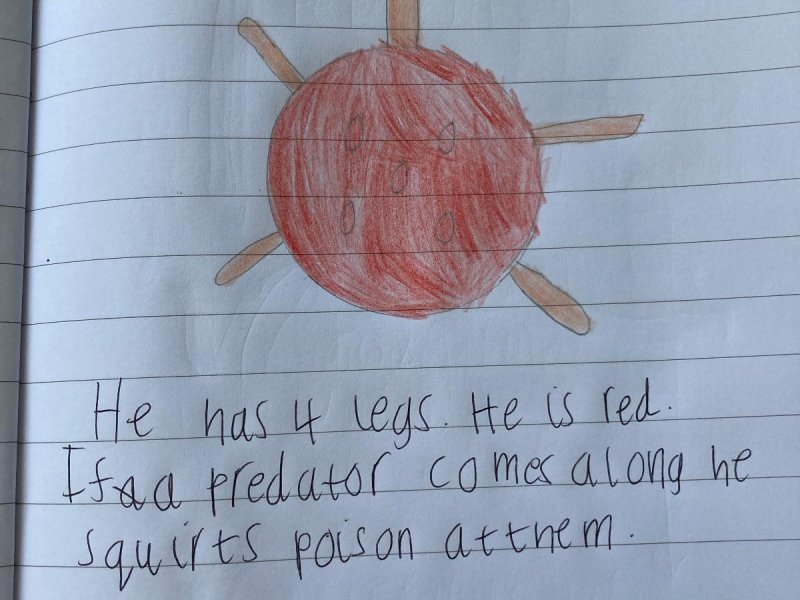 He has 4 legs. He is red.
If a predator comes along he
squirts poison at them.